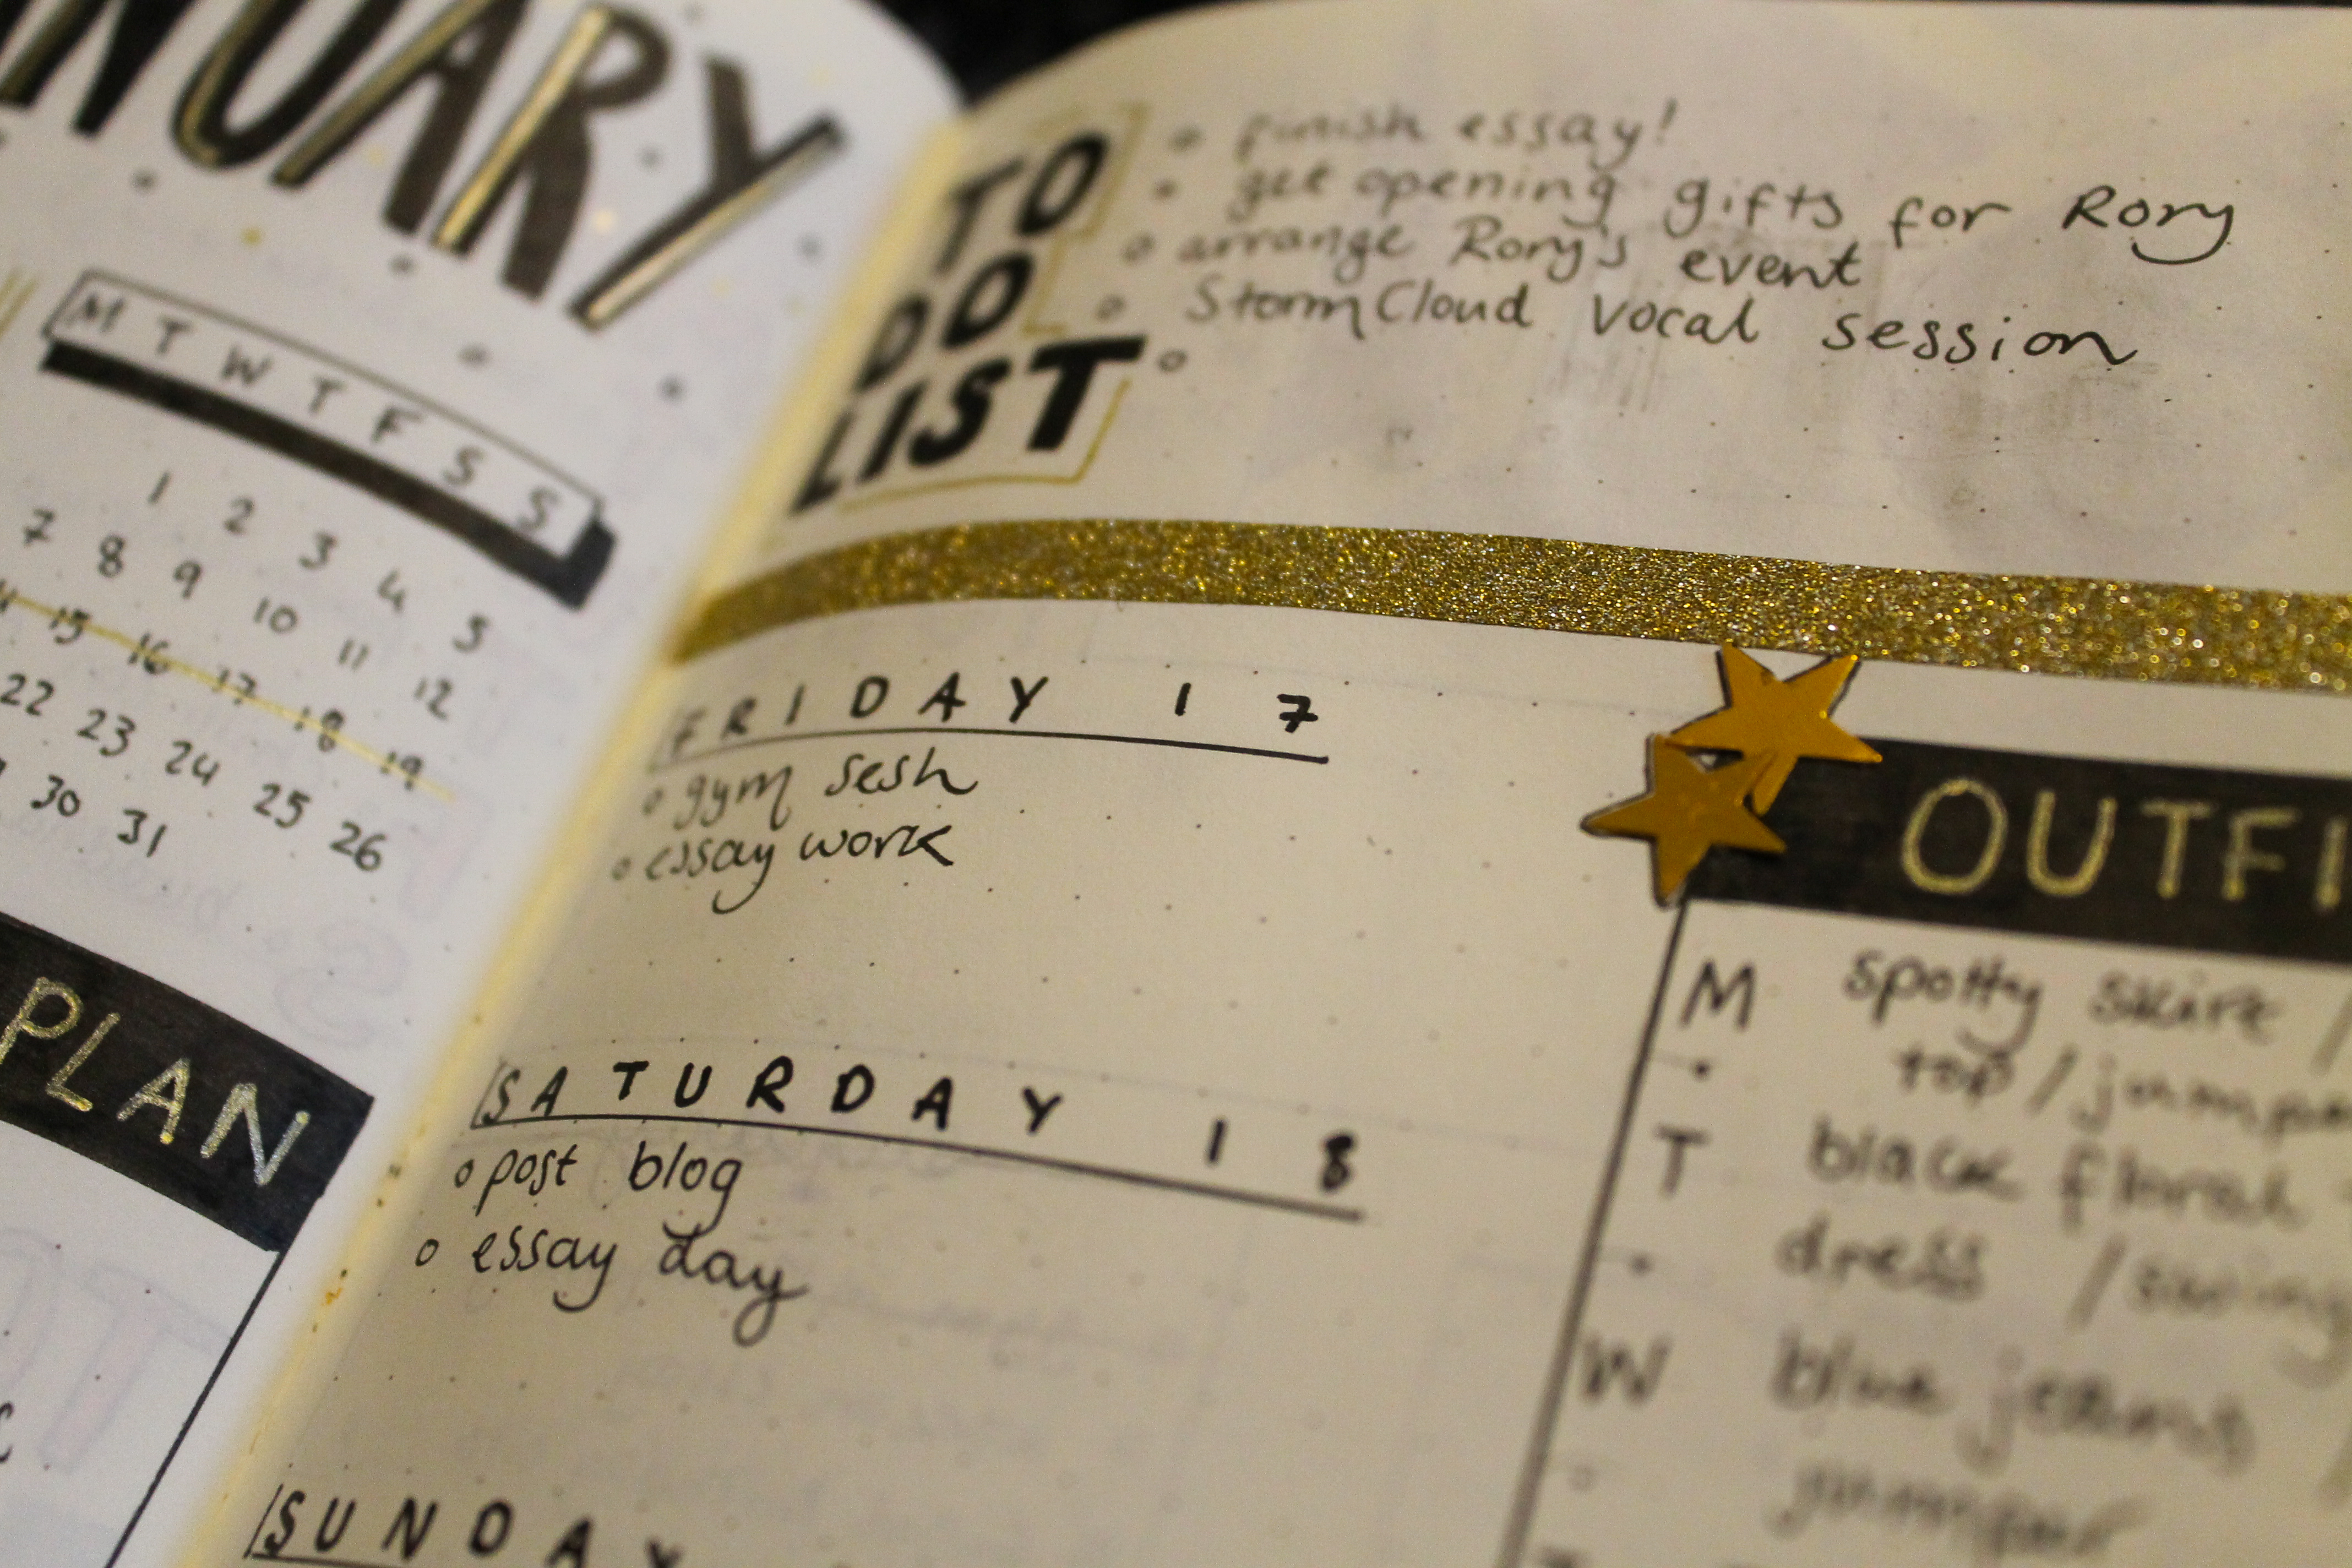 NUARY
M T W T F S S
1 2 3 4 5
7 8 9 10 11 12
15 16 17 18 19
22 23 24 25 26
30 31
PLAN
TO
DO
LIST
finish essay!
get opening gifts for Rory
arrange Rory's event
StormCloud vocal session
FRIDAY 17
gym sesh
essay work
SATURDAY 18
post blog
essay day
SUNDAY
OUTFI
M spotty skirt /
top / jumpe
T black floral
dress / swing
W blue jeans
jumper